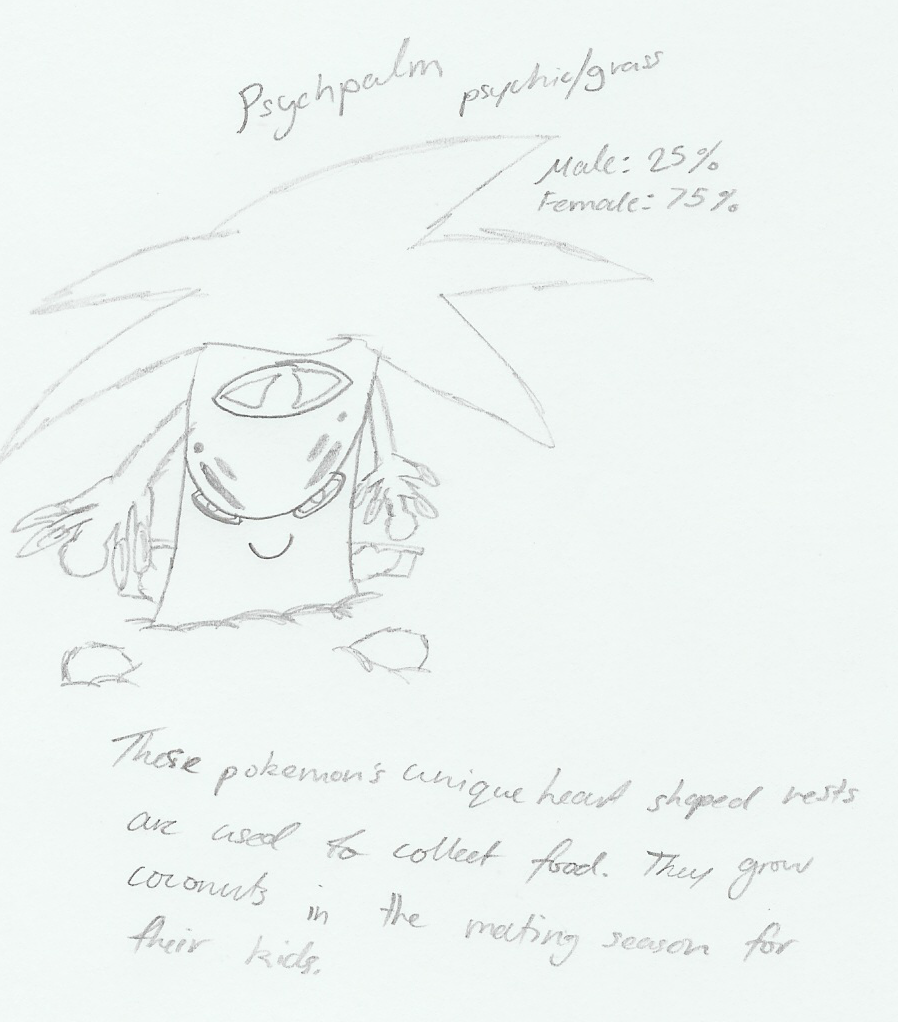 Psychpalm
psychic/grass
Male: 25%
Female: 75%
These pokemon's unique heart shaped rests
are used to collect food. They grow
coconuts in the mating season for
their kids.